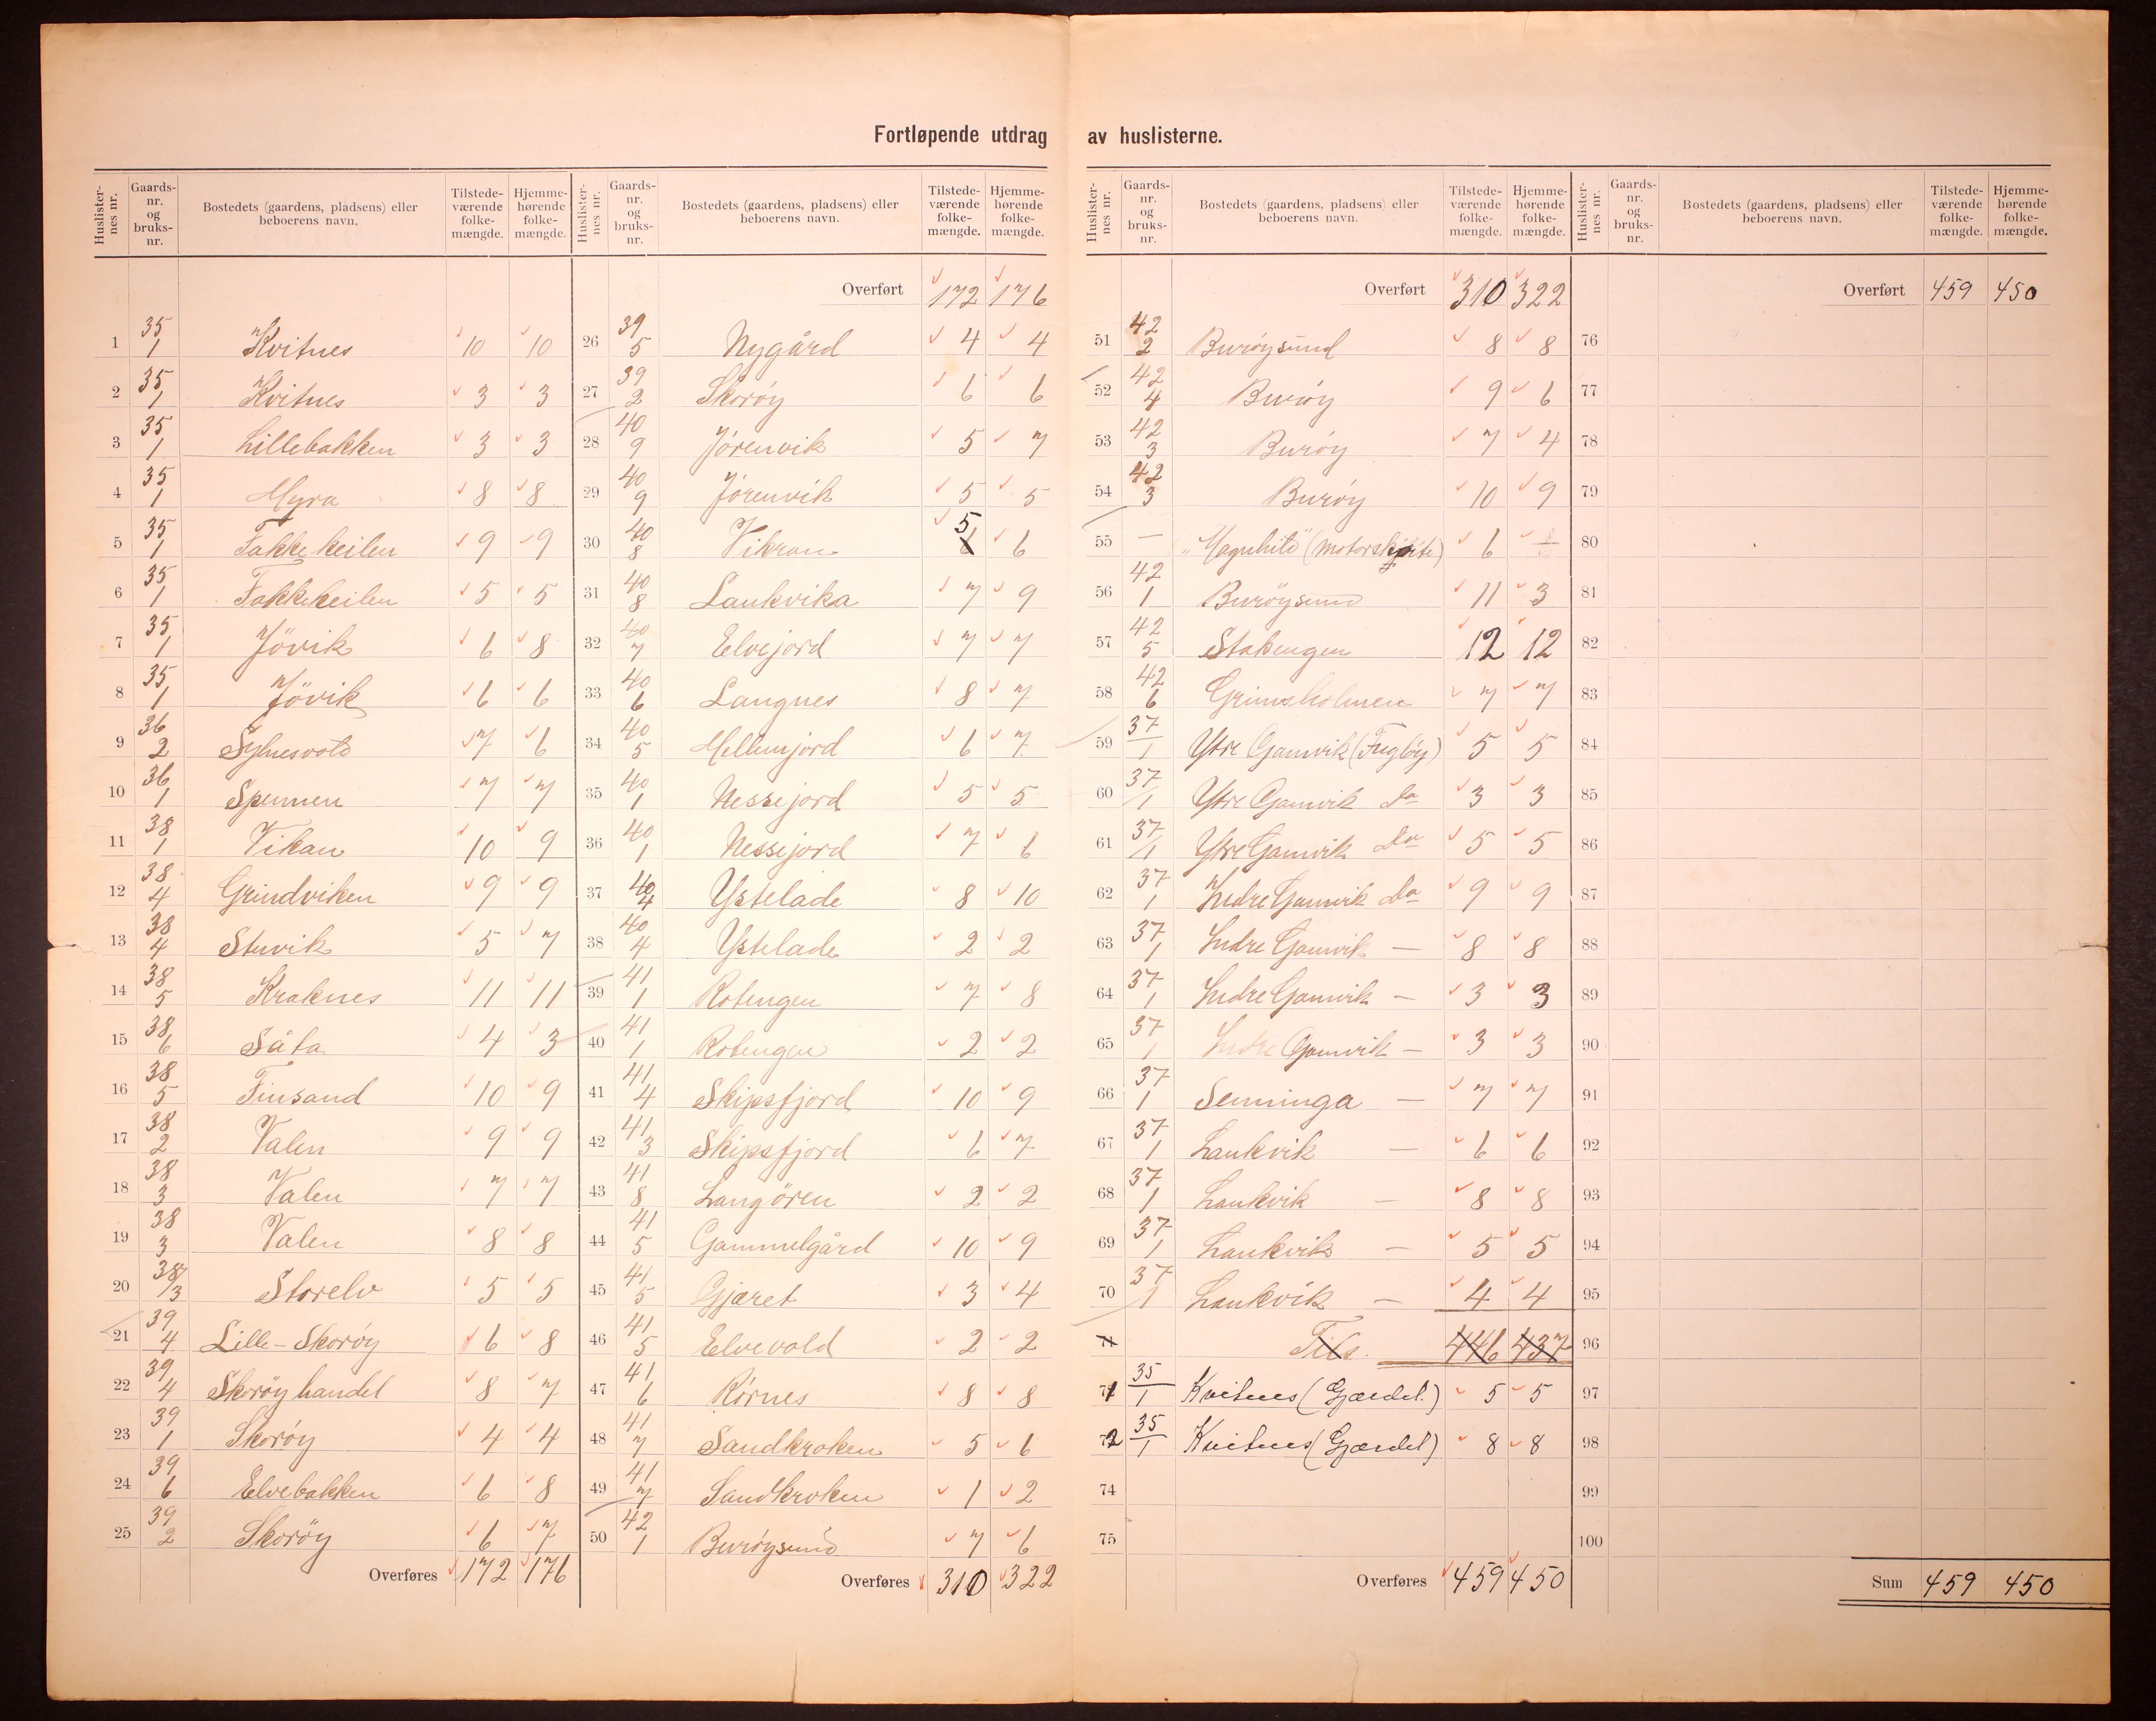 Fortløpende utdrag av huslisterne.
Huslisternes nr. Gaards-nr. og bruks-nr. Bostedets (gaardens, pladsens) eller beboerens navn. Tilstede-værende folke-mængde. Hjemme-hørende folke-mængde.
1 35/1 Kvitnes 10 10
2 35/1 Kvitnes 3 3
3 35/1 Lillebakken 3 3
4 35/1 Myra 8 8
5 35/1 Fakkekeilen 9 9
6 35/1 Fakkekeilen 5 5
7 35/1 Jövik 6 8
8 35/1 Jövik 6 6
9 36/2 Sylnesvold 7 6
10 36/1 Spennen 7 7
11 38/1 Vikan 10 9
12 38/4 Grindviken 9 9
13 38/4 Stuvik 5 7
14 38/5 Kraknes 11 11
15 38/6 Såta 4 3
16 38/5 Finsand 10 9
17 38/2 Valen 9 9
18 38/3 Valen 7 7
19 38/3 Valen 8 8
20 38/3 Storelv 5 5
21 39/4 Lille-Skorøy 6 8
22 39/4 Skorøy handel 8 7
23 39/1 Skorøy 4 4
24 39/6 Elvebakken 6 8
25 39/2 Skorøy 6 7
Overføres 172 176
Huslisternes nr. Gaards-nr. og bruks-nr. Bostedets (gaardens, pladsens) eller beboerens navn. Tilstede-værende folke-mængde. Hjemme-hørende folke-mængde.
Overført 172 176
26 39/5 Nygård 4 4
27 39/2 Skorøy 6 6
28 40/9 Jørenvik 5 7
29 40/9 Jørenvik 5 5
30 40/8 Vikran 5 6
31 40/8 Laukvika 7 9
32 40/7 Elvejord 7 7
33 40/6 Langnes 8 7
34 40/5 Mellemjord 6 7
35 40/1 Nessejord 5 5
36 40/1 Nessejord 7 6
37 40/4 Ystelade 8 10
38 40/4 Ystelade 2 2
39 41/1 Rotengen 7 8
40 41/1 Rotengen 2 2
41 41/4 Skipsfjord 10 9
42 41/3 Skipsfjord 6 7
43 41/8 Langören 2 2
44 41/5 Gammelgård 10 9
45 41/5 Gjæret 3 4
46 41/5 Elvevold 2 2
47 41/6 Rörnes 8 8
48 41/7 Sandkroken 5 6
49 41/7 Sandkroken 1 2
50 42/1 Burøysund 7 6
Overføres 310 322
Huslisternes nr. Gaards-nr. og bruks-nr. Bostedets (gaardens, pladsens) eller beboerens navn. Tilstede-værende folke-mængde. Hjemme-hørende folke-mængde.
Overført 310 322
51 42/2 Burøysund 8 8
52 42/4 Burøy 9 6
53 42/3 Burøy 7 4
54 42/3 Burøy 10 9
55 — "Magnhild" (motorskøite) 6
56 42/1 Burøysund 11 3
57 42/5 Stakengen 12 12
58 42/6 Grimsholmen 7 7
59 37/1 Ytre Gamvik (Fugløy) 5 5
60 37/1 Ytre Gamvik Do 3 3
61 37/1 Ytre Gamvik Do 5 5
62 37/1 Indre Gamvik Do 9 9
63 37/1 Indre Gamvik — 8 8
64 37/1 Indre Gamvik — 3 3
65 37/1 Indre Gamvik — 3 3
66 37/1 Senninga — 7 7
67 37/1 Laukvik — 6 6
68 37/1 Laukvik — 8 8
69 37/1 Laukvik — 5 5
70 37/1 Laukvik — 4 4
71 Tils. 446 437
71 35/1 Kvitnes (Gjærdet.) 5 5
72 35/1 Kvitnes (Gjærdet) 8 8
74
75
Overføres 459 450
Huslisternes nr. Gaards-nr. og bruks-nr. Bostedets (gaardens, pladsens) eller beboerens navn. Tilstede-værende folke-mængde. Hjemme-hørende folke-mængde.
Overført 459 450
76
77
78
79
80
81
82
83
84
85
86
87
88
89
90
91
92
93
94
95
96
97
98
99
100
Sum 459 450